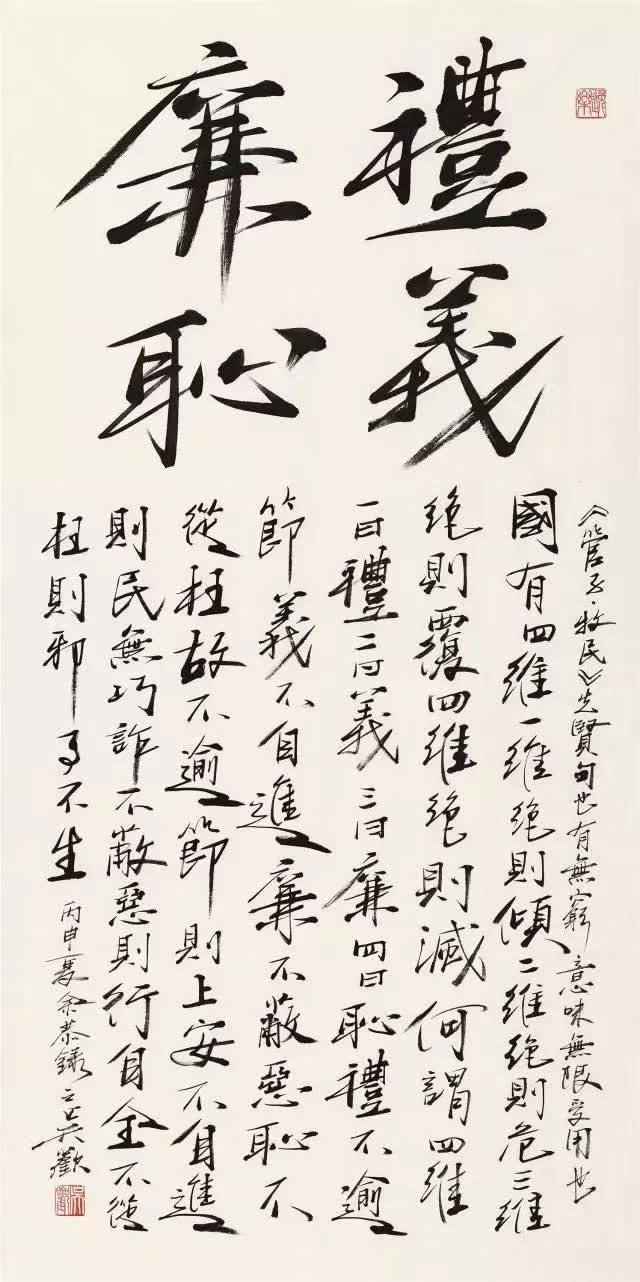 禮義
廉恥
《管子·牧民》先賢句也有無窮意味無限受用也
國有四維一維絕則傾二維絕則危三維
絕則覆四維絕則滅何謂四維
一曰禮二曰義三曰廉四曰恥禮不逾
節義不自進廉不蔽惡恥不
從枉故不逾節則上安不自進
則民無巧詐不蔽惡則行自全不從
枉則邪事不生
丙申夏余恭錄之吳歡